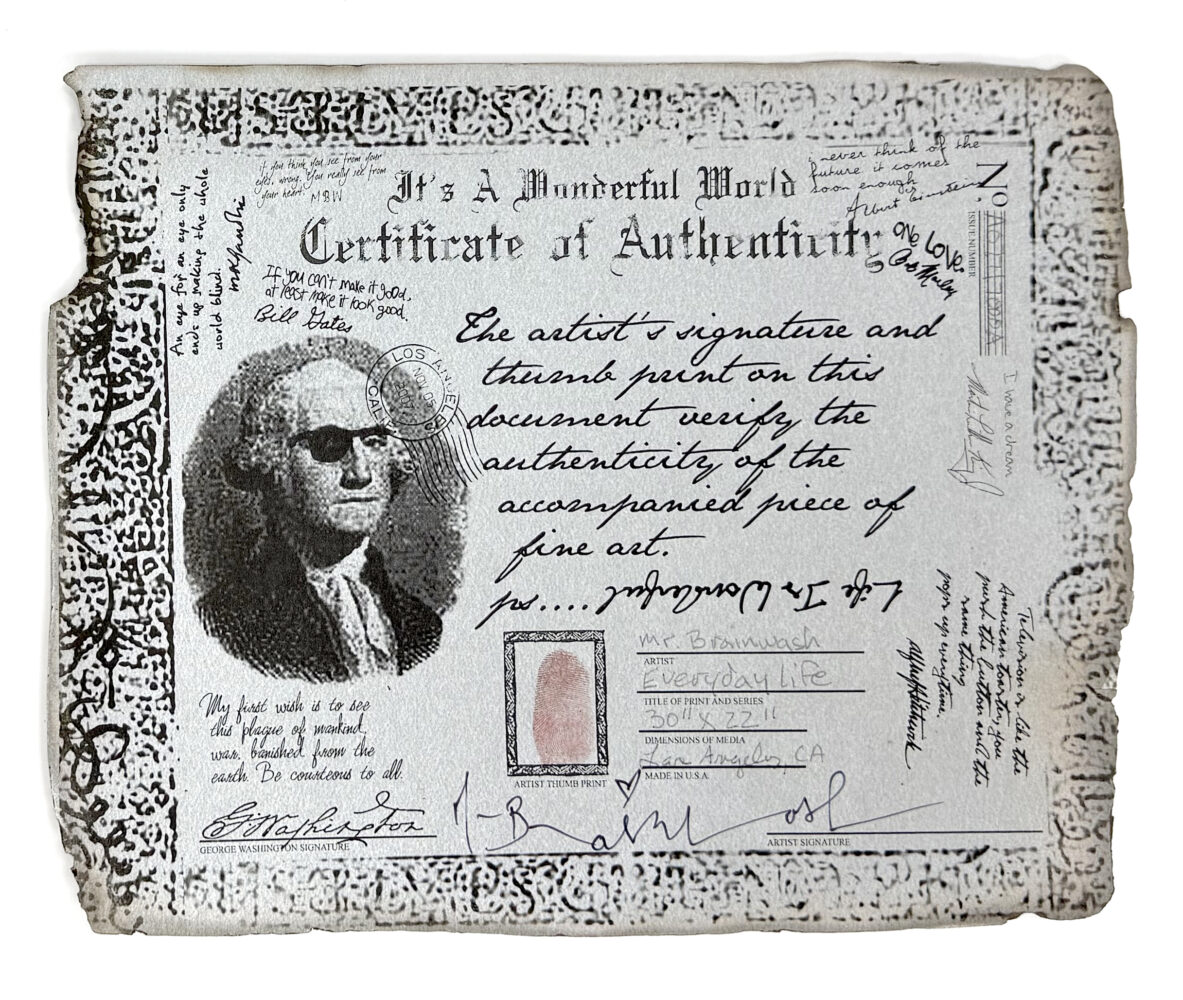 if you think you see from your
eyes, wrong. You really see from
your heart.
MBW
It's A Wonderful World
Certificate of Authenticity
I never think of the
future it comes
soon enough
Albert Einstein
No.
ISSUE NUMBER
ONE LOVE.
Bob Marley
An eye for an eye only
ends up making the whole
world blind.
MKGandhi
If you can't make it good,
at least make it look good.
Bill Gates
LOS ANGELES
CALI
The artist's signature and
thumb print on this
document verify the
authenticity of the
accompanied piece of
fine art.
Life Is Wonderful....
I have a dream
Television is like the
American toaster, you
push the button and the
same thing
pops up everytime.
Mr. Brainwash
ARTIST
Everyday Life
TITLE OF PRINT AND SERIES
30" X 22"
DIMENSIONS OF MEDIA
Los Angeles, CA
MADE IN U.S.A.
ARTIST THUMB PRINT
My first wish is to see
this plague of mankind,
war, banished from the
earth. Be courteous to all.
G Washington
GEORGE WASHINGTON SIGNATURE
Mr Brainwash
ARTIST SIGNATURE